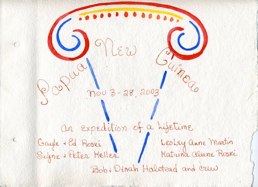 Papua New Guinea
Nov 3-28, 2003
An expedition of a lifetime
Gayle & Ed Rosei Lesley Anne Martin
& Peter Katrina Rosei
Bob & Dinah Halstead and crew